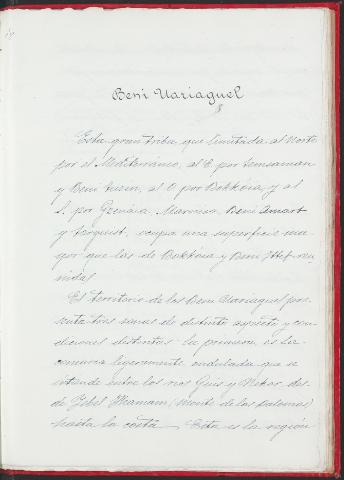 Beni Uariaguel
Esta gran tribu que limitada al Norte
por el Mediterráneo, al E por Temsaman
y Beni Tuzin, al O por Bokkoia y al
S. por Gzenaia, Marnisa, Beni Amart
y Targuist, ocupa una superficie ma-
yor que las de Bokkoia y Beni Ittef reu-
nidas
El territorio de los Beni Uariaguel pre-
senta tres zonas de distinto aspecto y con-
diciones distintas. La primera, es la
comarca ligeramente ondulada que se
extiende entre los rios Guis y Nekor des-
de Yebel Hamam (monte de las palomas)
hasta la costa. Esta es la región